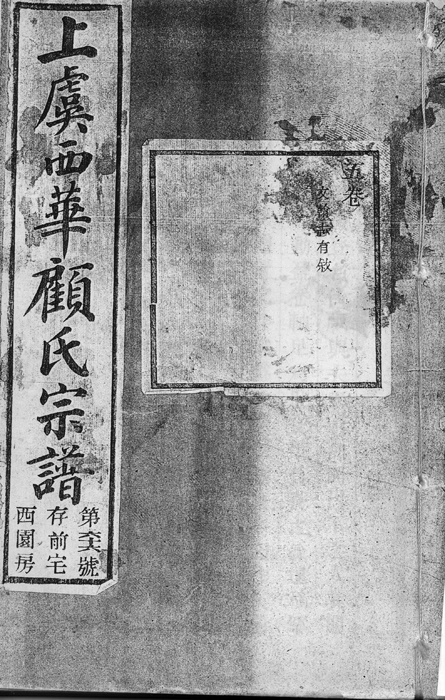 五卷
文
志有敘
上虞西華顧氏宗譜
第六號
存前宅
西園房